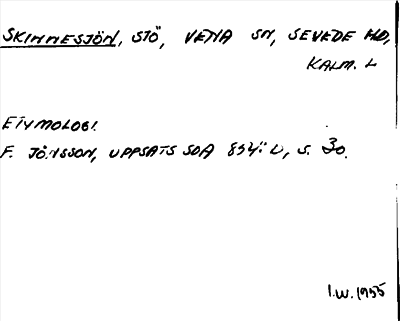 SKINNESJÖN, SJÖ, VENA SN, SEVEDE HD,
KALM. L
ETYMOLOGI.
F. JÖNSSON, UPPSATS SOA 854: D, S. 30.
I.W. 1955